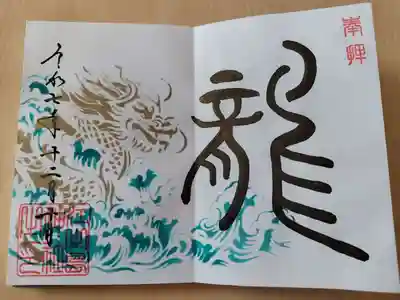 奉拝
龍
令和七年十二月十日